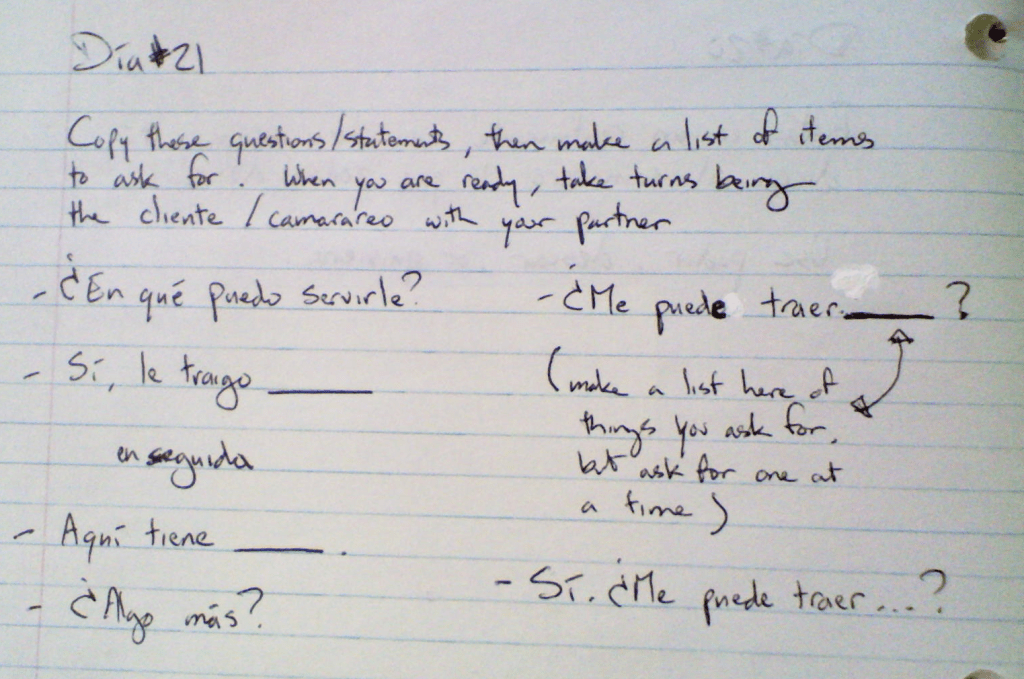 Día #21
Copy these questions/statements, then make a list of items
to ask for. When you are ready, take turns being
the cliente/camarareo with your partner
- ¿En qué puedo servirle?
- Sí, le traigo ______
en seguida
- Aquí tiene ______.
- ¿Algo más?
- ¿Me puede traer ______?
(make a list here of
things you ask for,
but ask for one at
a time)
- Sí. ¿Me puede traer....?